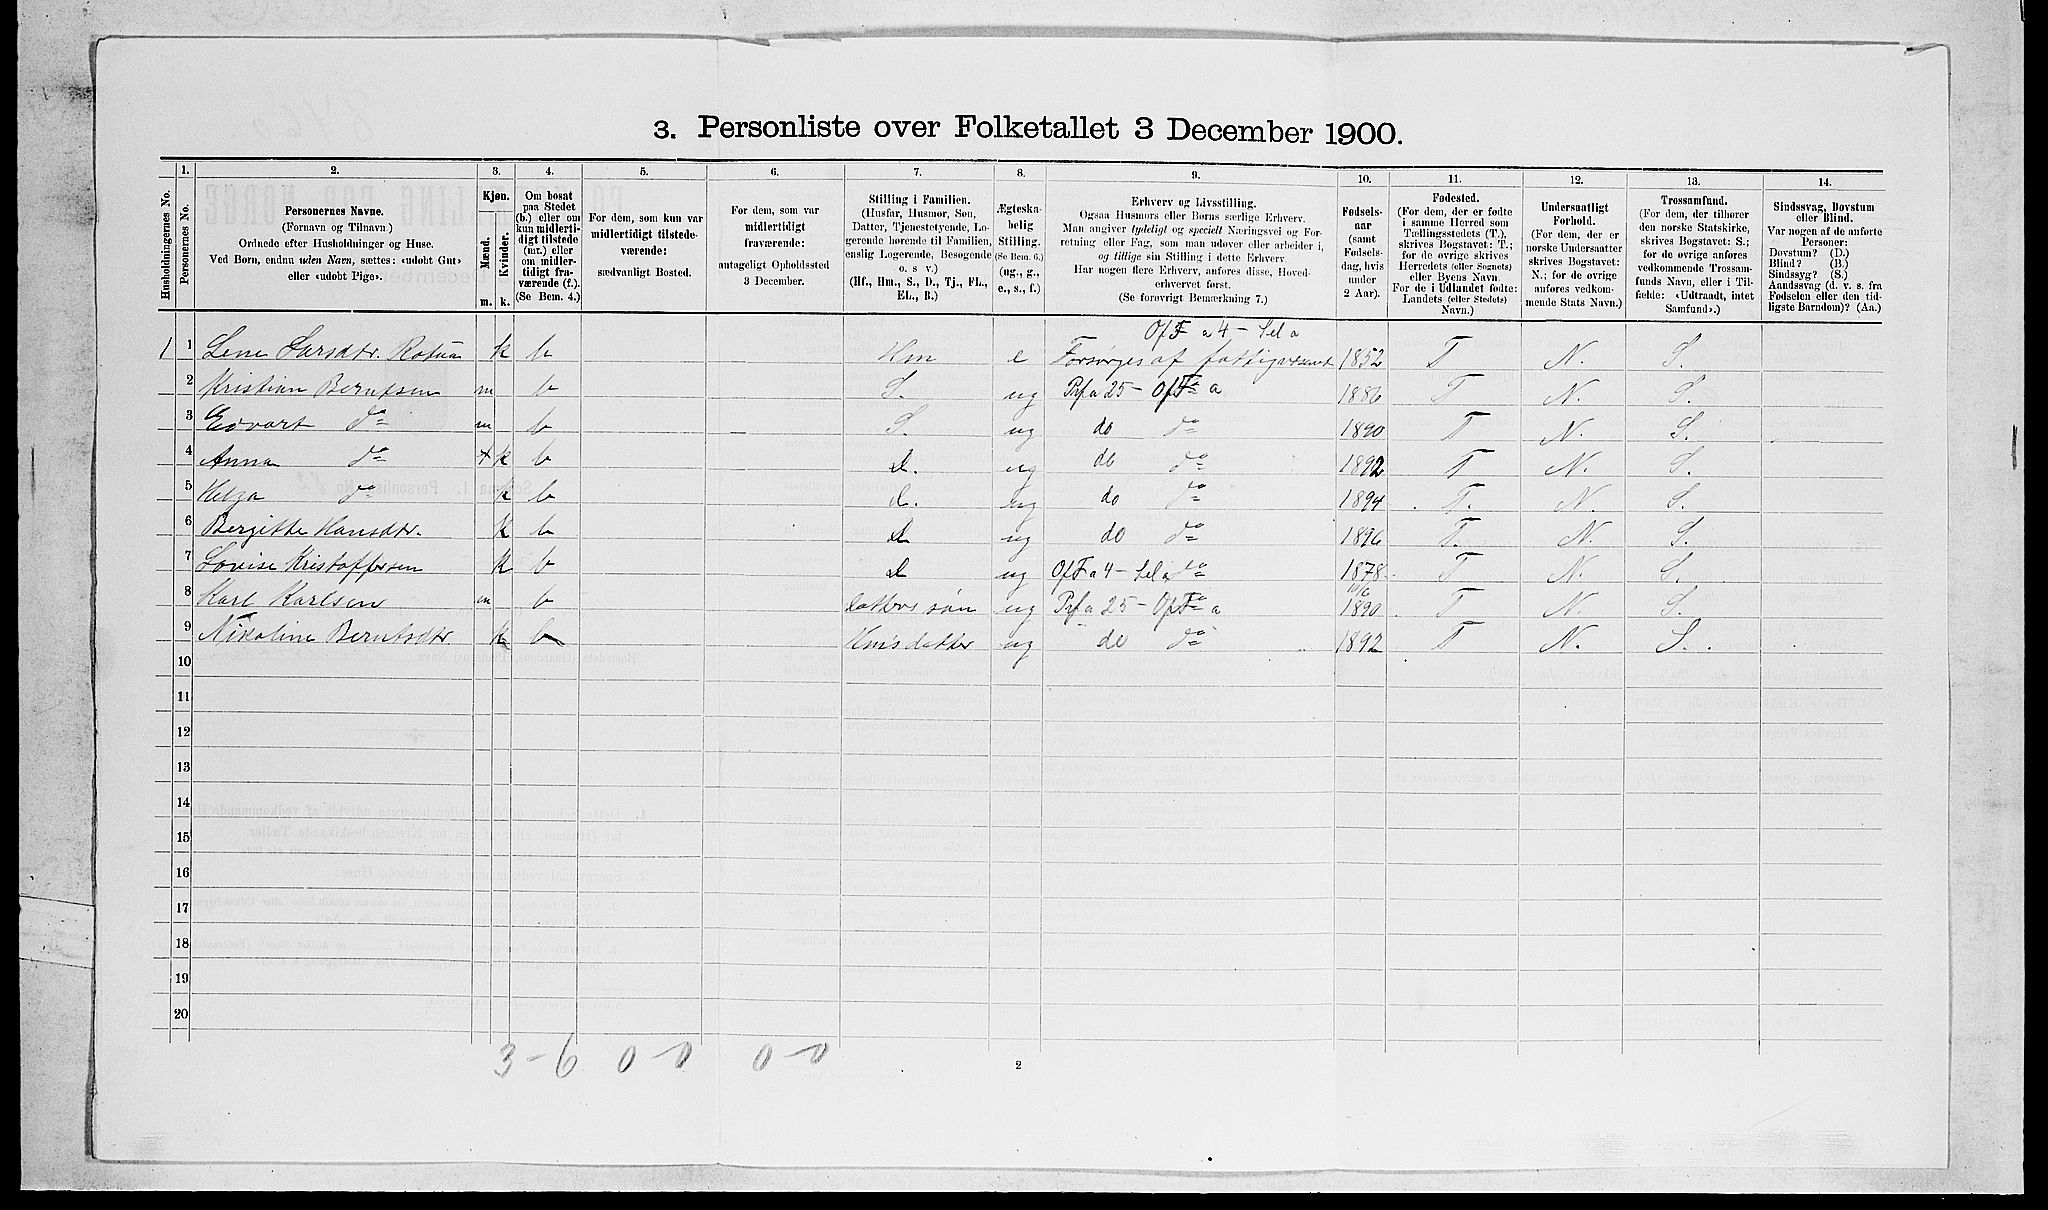 3. Personliste over Folketallet 3 December 1900.
Husholdningernes No.
1.
Personernes No.
2.
Personernes Navne.
(Fornavn og Tilnavn.)
Ordnede efter Husholdninger og Huse.
Ved Børn, endnu uden Navn, sættes: «udøbt Gut»
eller «udøbt Pige».
3.
Kjøn.
Mænd.
Kvinder.
m. k.
4.
Om bosat
paa Stedet
(b.) eller om
kun midlerti-
digt tilstede
(mt.) eller
om midler-
tidigt fra-
værende (f.).
(Se Bem. 4.)
5.
For dem, som kun var
midlertidigt tilstede-
værende:
sædvanligt Bosted.
6.
For dem, som var
midlertidigt
fraværende:
antageligt Opholdssted
3 December.
7.
Stilling i Familien.
(Husfar, Husmor, Søn,
Datter, Tjenestetyende, Lo-
gerende hørende til Familien,
enslig Logerende, Besøgende
o. s v.)
(Hf., Hm., S., D., Tj., FL.,
EL., B.)
8.
Ægteska-
belig
Stilling.
(Se Bem. 6.)
(ug., g.,
e., s., f.)
9.
Erhverv og Livsstilling.
Ogsaa Husmors eller Børns særlige Erhverv.
Man angiver tydeligt og specielt Næringsvei og For-
retning eller Fag, som man udøver eller arbeider i,
og tillige sin Stilling i dette Erhverv.
Har nogen flere Erhverv, anføres disse, Hoved-
erhvervet først.
(Se forøvrigt Bemærkning 7.)
10.
Fødsels-
aar
(samt
Fødsels-
dag, hvis
under
2 Aar).
11.
Fødested.
(For dem, der er fødte
i samme Herred som
Tællingsstedets (T.),
skrives Bogstavet: T.;
for de øvrige skrives
Herredets (eller Sognets)
eller Byens Navn
For de i Udlandet fødte:
Landets (eller Stedets)
Navn.)
12.
Undersaatligt
Forhold.
(For dem, der er
norske Undersaatter
skrives Bogstavet:
N.; for de øvrige
anføres vedkom-
mende Stats Navn.)
13.
Trossamfund.
(For dem, der tilhører
den norske Statskirke,
skrives Bogstavet: S.;
for de øvrige anføres
vedkommende Trossam-
funds Navn, eller i Til-
fælde: «Udtraadt, intet
Samfund».)
14.
Sindssvag, Døvstum
eller Blind.
Var nogen af de anførte
Personer:
Døvstum? (D.)
Blind? (B.)
Sindssyg? (S.)
Aandssvag (d. v. s. fra
Fødselen eller den tid-
ligste Barndom)? (Aa.)
OfF a 4 - Sel a
1 1 Lene Larsdtr. k b Hm e Forsørges af fattigvæsenet 1852 T N. S.
2 Kristian Berntsen m b S. ug Prf a 25 - OfF a 1886 T N. S.
3 Edvart do m b S. ug do do 1890 T N. S.
4 Anna do k b d. ug do do 1892 T N. S.
5 Helga do k b d. ug do do 1894 T. N. S.
6 Bergitte Hansdtr. k b d ug do do 1896 T. N. S.
7 Lovise Kristoffersen k b d ug OfF a 4 - Sel a do 1878 T N. S.
8 Karl Karlsen m b datters søn ug Prf a 25 - OfF a 1890 T N. S.
9 Nikoline Berntsdtr k b Hm's datter ug do do 1892 T N. S.
10
11
12
13
14
15
16
17
18
19
20
3 - 6 0 - 0 0 - 0
2